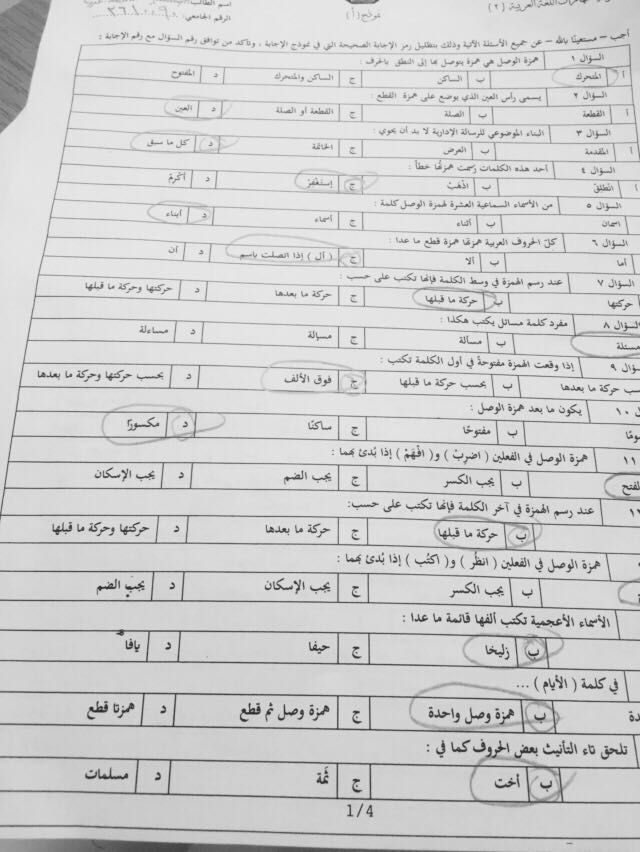 اللغة العربية (٢)
نموذج (أ)
اسم الطالب
الرقم الجامعي:
أجب – مستعينًا بالله – عن جميع الأسئلة الآتية وذلك بتظليل رمز الإجابة الصحيحة التي في نموذج الإجابة ، وتأكد من توافق رقم السؤال مع رقم الإجابة :
السؤال ١ همزة الوصل هي همزة يتوصل بها إلى النطق بالحرف:
أ المتحرك ب الساكن ج الساكن والمتحرك د المفتوح
السؤال ٢ يسمى رأس العين الذي يوضع على همزة القطع :
أ القطعة ب الصلة ج القطعة أو الصلة د العين
السؤال ٣ البناء الموضوعي للرسالة الإدارية لا بد أن يحوي :
أ المقدمة ب العرض ج الخاتمة د كل ما سبق
السؤال ٤ أحد هذه الكلمات رسمت همزتها خطأ :
أ انطلق ب اذْهَبْ ج إستَغْفِرْ د أكْرِمْ
السؤال ٥ من الأسماء السماعية العشرة لهمزة الوصل كلمة :
اسمان ب أثناء ج أسماء د أبناء
السؤال ٦ كلّ الحروف العربية همزتها همزة قطع ما عدا :
أما ب ألا ج ( أل ) إذا اتصلت باسم د أن
السؤال ٧ عند رسم الهمزة في وسط الكلمة فإنها تكتب على حسب :
حركتها ب حركة ما قبلها ج حركة ما بعدها د حركتها وحركة ما قبلها
السؤال ٨ مفرد كلمة مسائل يكتب هكذا :
مسئلة ب مسألة ج مسيالة د مساءلة
ؤال ٩ إذا وقعت الهمزة مفتوحةً في أول الكلمة تكتب :
سب حركة ما بعدها ب بحسب حركة ما قبلها ج فوق الألف د بحسب حركتها وحركة ما بعدها
ل ١٠ يكون ما بعد همزة الوصل :
ومًا ب مفتوحًا ج ساكنًا د مكسورًا
١١ همزة الوصل في الفعلين ( اضرِبْ ) و( افْهَمْ ) إذا بُدئ بهما :
لفتح ب يجب الكسر ج يجب الضم د يجب الإسكان
عند رسم الهمزة في آخر الكلمة فإنها تكتب على حسب:
ب حركة ما قبلها ج حركة ما بعدها د حركتها وحركة ما قبلها
همزة الوصل في الفعلين ( انظُر ) و( اكتُب ) إذا بُدئ بهما :
ب يجب الكسر ج يجب الإسكان د يجب الضم
الأسماء الأعجمية تكتب ألفها قائمة ما عدا :
ب زليخا ج حيفا د يافا
في كلمة ( الأيام ) ...
دة ب همزة وصل واحدة ج همزة وصل ثم قطع د همزتا قطع
تلحق تاء التأنيث بعض الحروف كما في :
ب أخت ج ثَمة د مسلمات
1/4